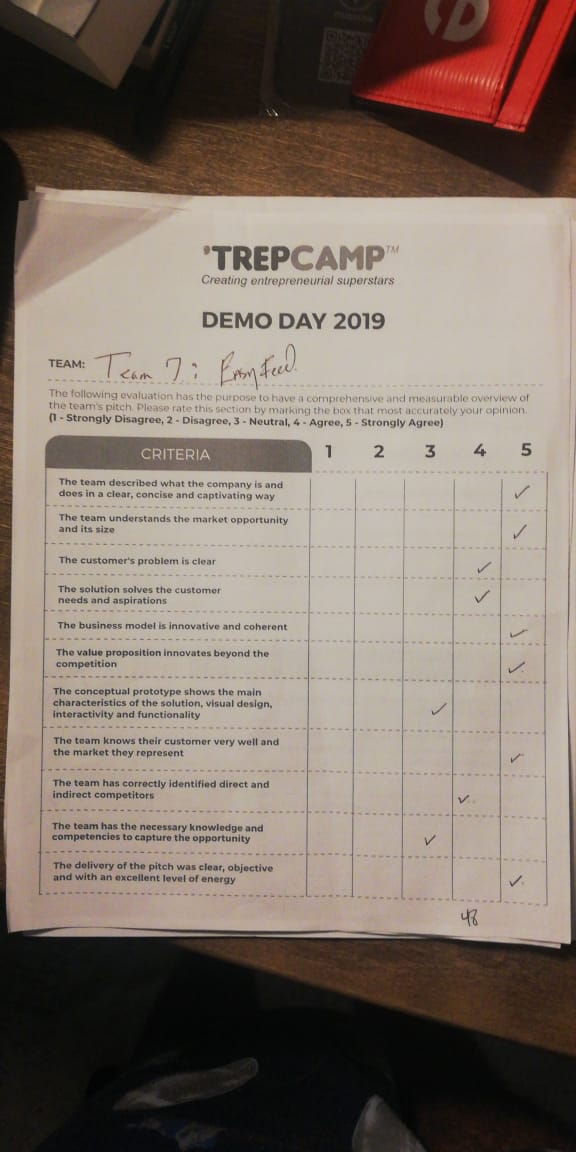 'TREPCAMP™
Creating entrepreneurial superstars
DEMO DAY 2019
TEAM: Team 7: EasyFeed.
The following evaluation has the purpose to have a comprehensive and measurable overview of
the team's pitch. Please rate this section by marking the box that most accurately your opinion.
(1 - Strongly Disagree, 2 - Disagree, 3 - Neutral, 4 - Agree, 5 - Strongly Agree)
CRITERIA 1 2 3 4 5
The team described what the company is and
does in a clear, concise and captivating way ✓
The team understands the market opportunity
and its size ✓
The customer's problem is clear ✓
The solution solves the customer
needs and aspirations ✓
The business model is innovative and coherent ✓
The value proposition innovates beyond the
competition ✓
The conceptual prototype shows the main
characteristics of the solution, visual design,
interactivity and functionality ✓
The team knows their customer very well and
the market they represent ✓
The team has correctly identified direct and
indirect competitors ✓
The team has the necessary knowledge and
competencies to capture the opportunity ✓
The delivery of the pitch was clear, objective
and with an excellent level of energy ✓
48